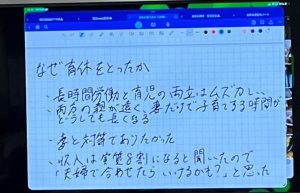 なぜ育休をとったか
・長時間労働と育児の両立はムズカしい…
・両方の親が遠く、妻だけで子育てする時間が
どうしても長くなる
・妻と対等でありたかった
・収入は実質8割になると聞いたので
「夫婦で合わせたらいけるかも?」と思った